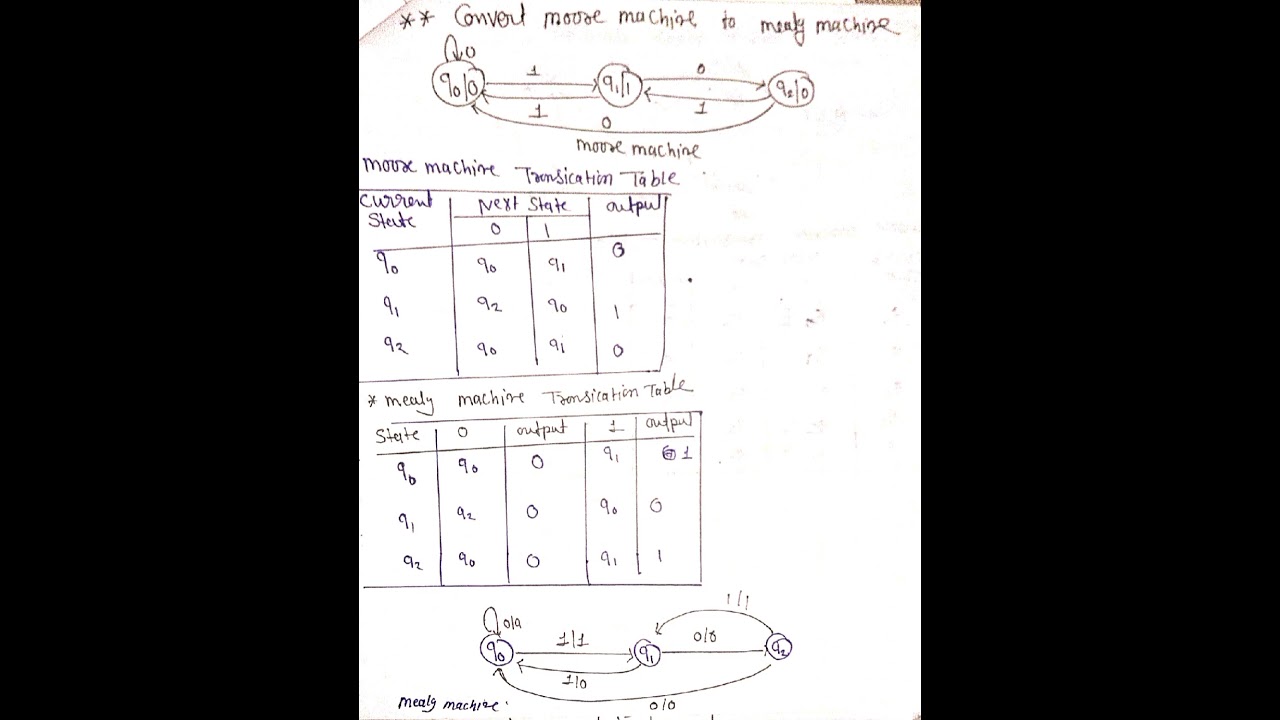 ** Convert moore machine to mealy machine
0
q0/0 1 q1/1 0 q2/0
1 1
0
moore machine
moore machine Transication Table
Current State Next State output
0 1
q0 q0 q1 0
q1 q2 q0 1
q2 q0 q1 0
* mealy machine Transication Table
State 0 output 1 output
q0 q0 0 q1 1
q1 q2 0 q0 0
q2 q0 0 q1 1
1/1
0/0 1/1 0/0
q0 q1 q2
1/0
mealy machine: 0/0